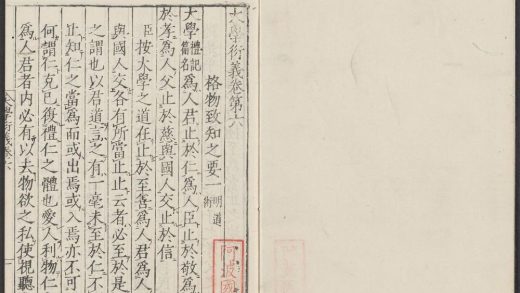 大學衍義卷第六
格物致知之要一 明道術
大學 禮記篇名 爲人君止於仁爲人臣止於敬爲
於孝爲人父止於慈與國人交止於信
臣按大學之道在止於至善爲人君爲人
與國人交各有所當止止云者必至於是
之謂也以君道言之有一毫未至於仁不
止知仁之當爲而或出焉或入焉亦不可
何謂仁克己復禮仁之體也愛人利物仁
爲人君者内必有以去物欲之私使視聽
大學衍義卷六
阿波國